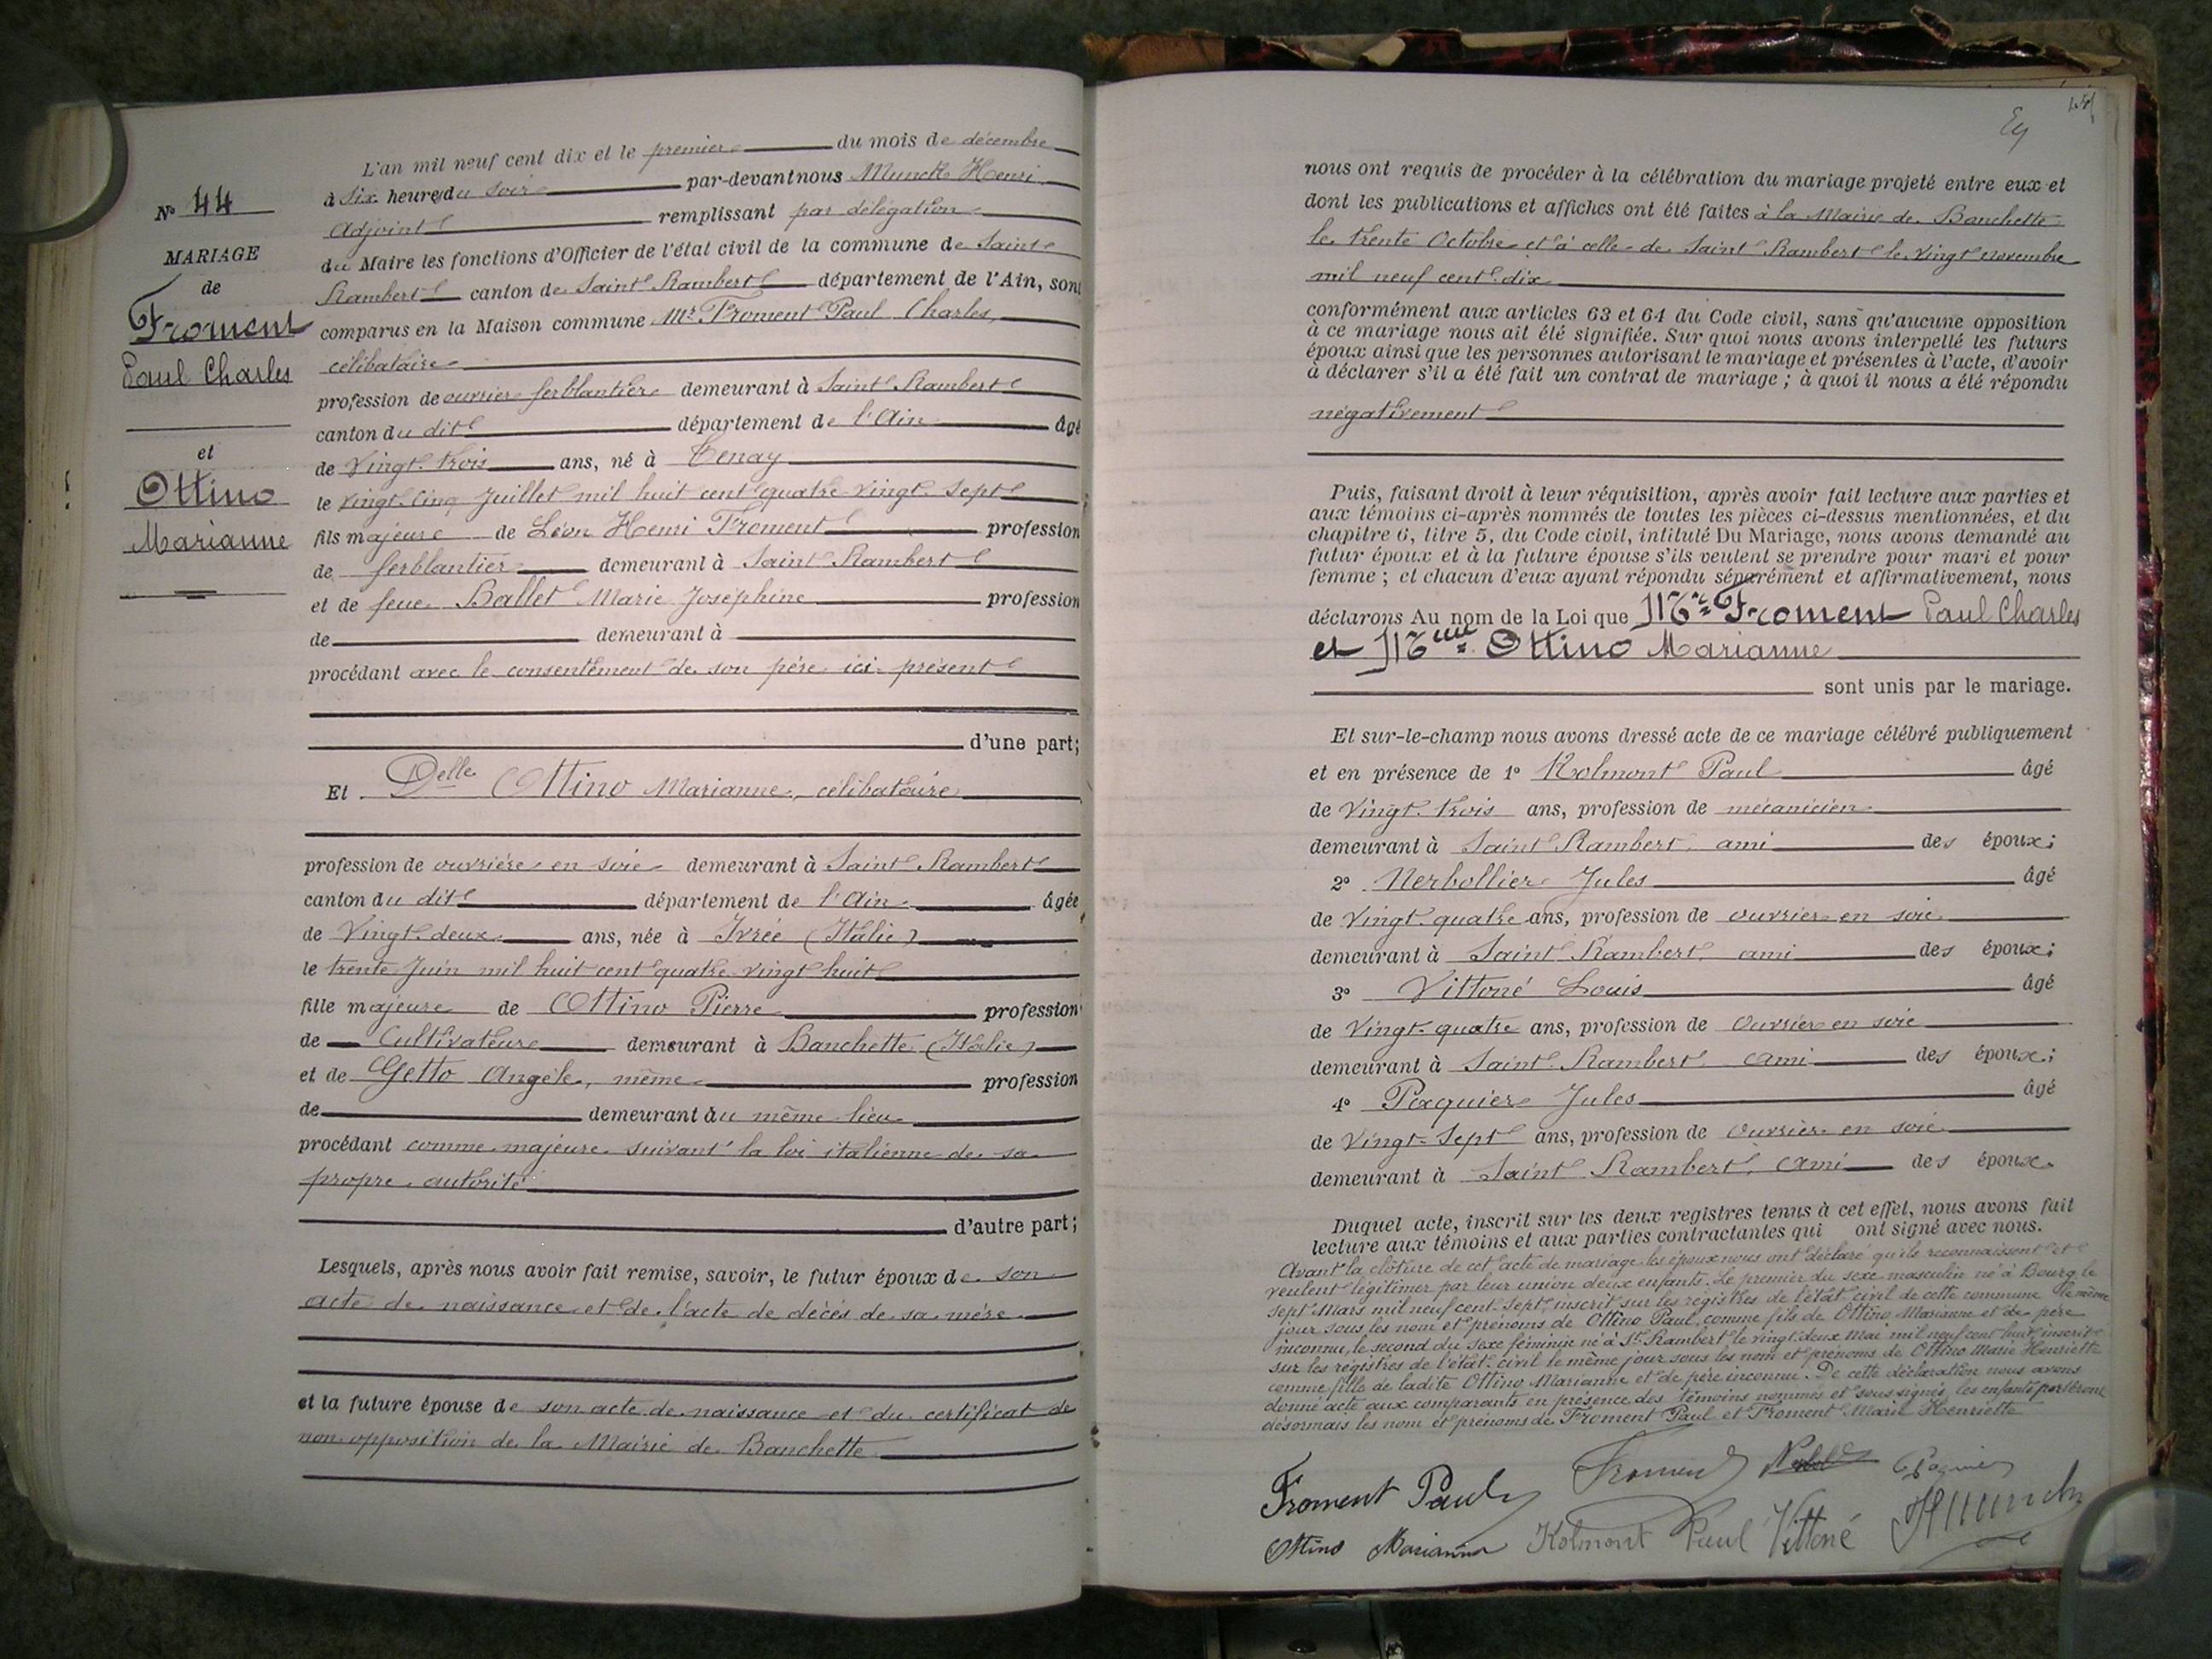 L'an mil neuf cent dix et le premier du mois de décembre
à Six heures du soir par-devant nous Munch Henri
Adjoint remplissant par délégation
du Maire les fonctions d'Officier de l'état civil de la commune de Saint
Rambert canton de Saint Rambert département de l'Ain, sont
comparus en la Maison commune Mr Froment Paul Charles,
célibataire
profession de ouvrier ferblantier demeurant à Saint Rambert
canton du dit département de l'Ain âgé
de Vingt-trois ans, né à Tenay
le vingt-cinq Juillet mil huit cent quatre-vingt-sept
fils majeur de Léon Henri Froment profession
de ferblantier demeurant à Saint Rambert
et de feue Ballet Marie Joséphine profession
de demeurant à
procédant avec le consentement de son père ici présent
d'une part;
Et Delle Ottino Marianne, célibataire
profession de ouvrière en soie demeurant à Saint Rambert
canton du dit département de l'Ain âgée
de Vingt-deux ans, née à Ivrée (Italie)
le trente Juin mil huit cent quatre-vingt huit
fille majeure de Ottino Pierre profession
de Cultivateur demeurant à Banchette (Italie)
et de Getto Angèle, même profession
de demeurant au même lieu
procédant comme majeure suivant la loi italienne de sa
propre autorité
d'autre part;
Lesquels, après nous avoir fait remise, savoir, le futur époux de son
acte de naissance et de l'acte de décès de sa mère
et la future épouse de son acte de naissance et du certificat de
non opposition de la Mairie de Banchette
No 44
MARIAGE
de
Froment
Paul Charles
et
Ottino
Marianne
nous ont requis de procéder à la célébration du mariage projeté entre eux et
dont les publications et affiches ont été faites à la Mairie de Banchette
le trente Octobre et à celle de Saint Rambert le vingt novembre
mil neuf cent dix
conformément aux articles 63 et 64 du Code civil, sans qu'aucune opposition
à ce mariage nous ait été signifiée. Sur quoi nous avons interpellé les futurs
époux ainsi que les personnes autorisant le mariage et présentes à l'acte, d'avoir
à déclarer s'il a été fait un contrat de mariage ; à quoi il nous a été répondu
négativement
Puis, faisant droit à leur réquisition, après avoir fait lecture aux parties et
aux témoins ci-après nommés de toutes les pièces ci-dessus mentionnées, et du
chapitre 6, titre 5, du Code civil, intitulé Du Mariage, nous avons demandé au
futur époux et à la future épouse s'ils veulent se prendre pour mari et pour
femme ; et chacun d'eux ayant répondu séparément et affirmativement, nous
déclarons Au nom de la Loi que Mr Froment Paul Charles
et Melle Ottino Marianne
sont unis par le mariage.
Et sur-le-champ nous avons dressé acte de ce mariage célébré publiquement
et en présence de 1° Kolmont Paul âgé
de Vingt-trois ans, profession de mécanicien
demeurant à Saint Rambert, ami des époux;
2° Nerbollier Jules âgé
de Vingt-quatre ans, profession de ouvrier en soie
demeurant à Saint Rambert, ami des époux;
3° Vittoné Louis âgé
de Vingt-quatre ans, profession de Ouvrier en soie
demeurant à Saint Rambert ami des époux;
4° Paquier Jules âgé
de Vingt-Sept ans, profession de Ouvrier en soie
demeurant à Saint Rambert, ami des époux.
Duquel acte, inscrit sur les deux registres tenus à cet effet, nous avons fait
lecture aux témoins et aux parties contractantes qui ont signé avec nous.
Avant la clôture de cet acte de mariage les époux nous ont déclaré qu'ils reconnaissent et
veulent légitimer par leur union deux enfants. Le premier du sexe masculin né à Bourg le
sept Mars mil neuf cent-sept inscrit sur les registres de l'état-civil de cette commune le même
jour sous les nom et prénoms de Ottino Paul, comme fils de Ottino Marianne et de père
inconnu, le second du sexe féminin né à St Rambert le vingt-deux Mai mil neuf cent huit inscrit
sur les registres de l'état-civil le même jour sous les nom et prénoms de Ottino Marie Henriette
comme fille de ladite Ottino Marianne et de père inconnu. De cette déclaration nous avons
donné acte aux comparants en présence des témoins nommés et soussignés, les enfants porteront
désormais les nom et prénoms de Froment Paul et Froment Marie Henriette
Froment Paul Froment Paquier
Ottino Marianna Kolmont Paul Vittoné HMunch